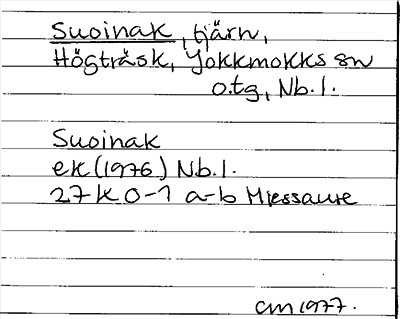 Suoinak, tjärn,
Högträsk, Jokkmokks sn
o.tg, Nb.l.
Suoinak
ek (1976) Nb.l.
27 K 0-1 a-b Messaure
CM 1977.